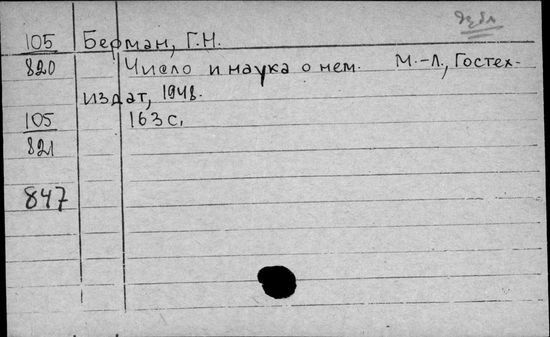 105 Берман, Г.Н.
820 Число и наука о нем. М.-Л., Гостех-
издат, 1948.
105 163 с.
821
847